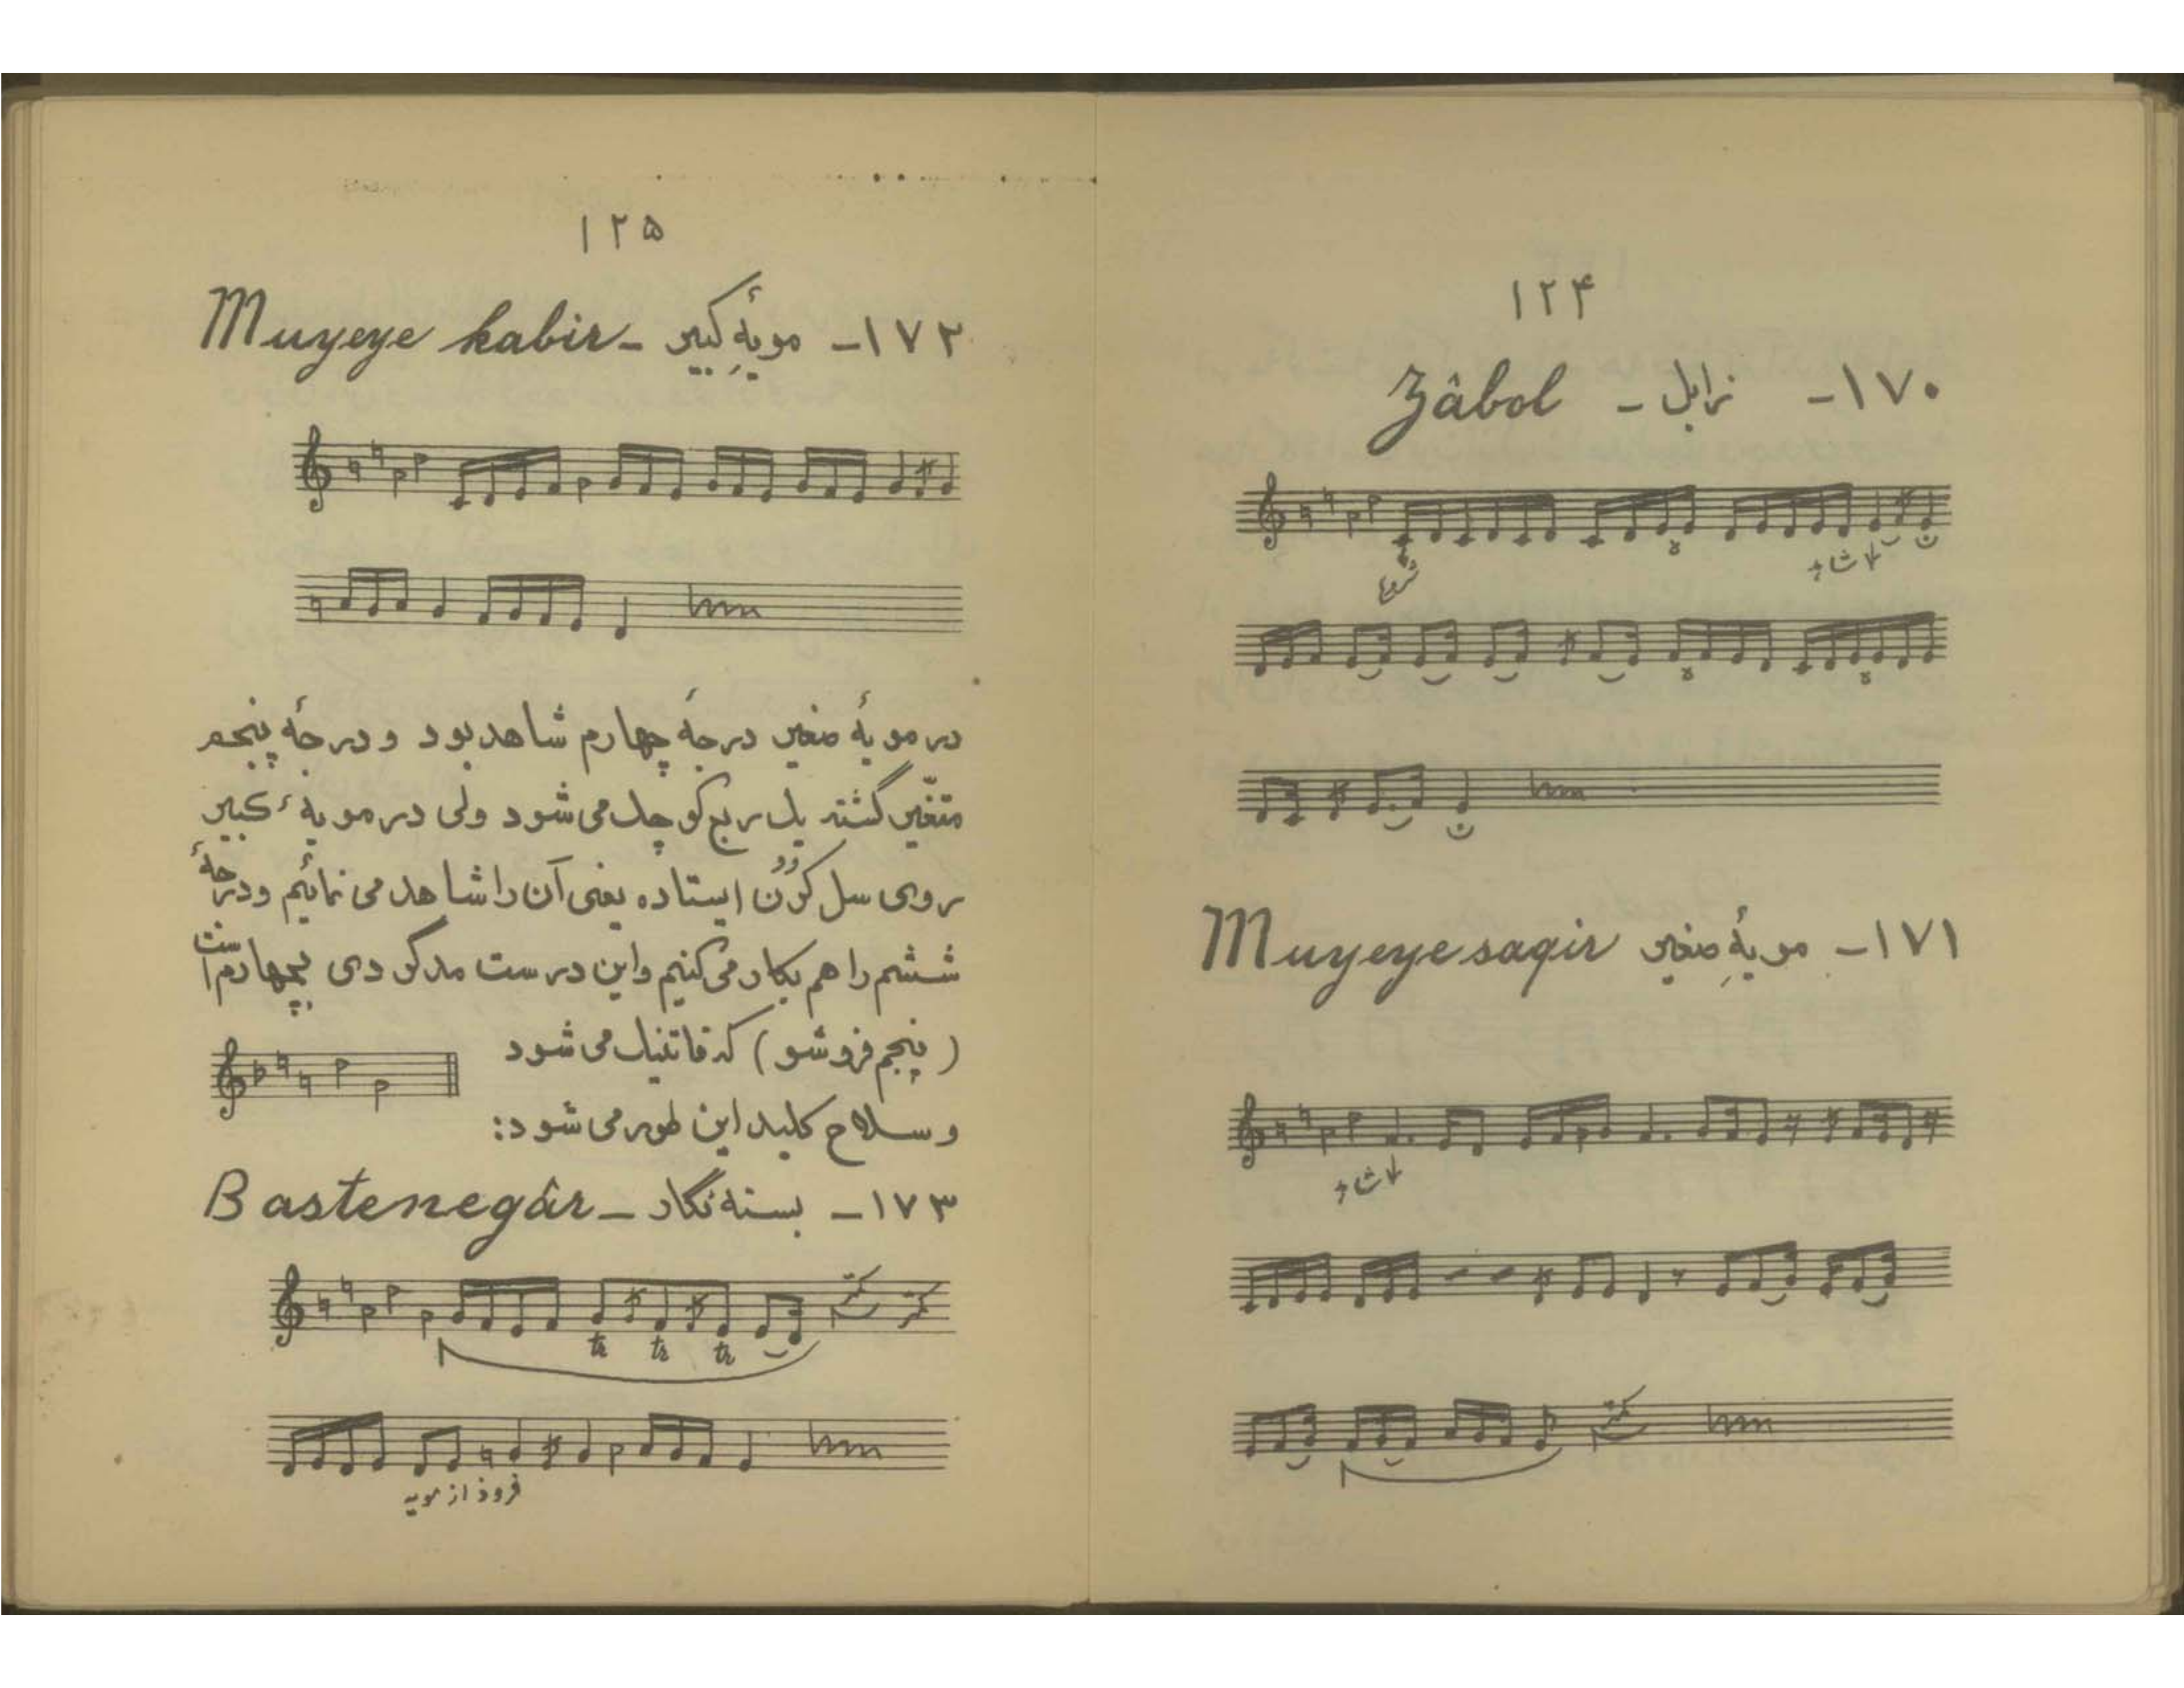 ۱۲۴
۱۷۰- زابل - Zâbol
شروع
شاهد
۱۷۱- مویهِٔ صغیر Muyeye saqir
شاهد
۱۲۵
۱۷۲- مویهِٔ کبیر - Muyeye kabir
در مویهٔ صغیر درجهٔ چهارم شاهد بود و درجهٔ پنجم
متغیّر گشته یک ربع کوچک می شود ولی در مویهٔ کبیر
روی سل کرُن ایستاده یعنی آن را شاهد می نمائیم و درجهٔ
ششم را هم بکار می کنیم و این درست مدگردی بچهارم است
(پنجم فروشو) که فا تنیک می شود
و سلاح کلید این طور می شود:
۱۷۳- بسته نگار - Bastenegâr
tr tr tr
فرود از مویه